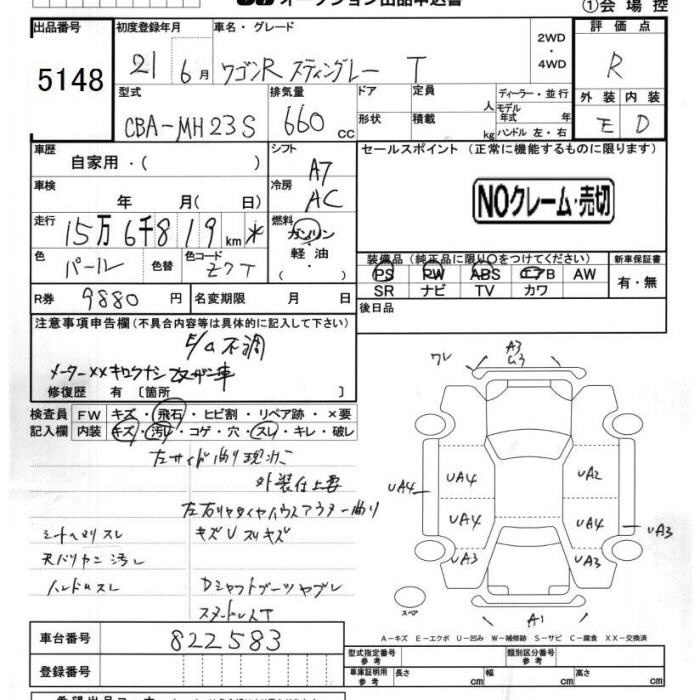 オークション出品申込書
①会場控
出品番号 5148
初度登録年月 21 6月
車名・グレード ワゴンR スティングレー T
2WD・4WD
評価点 R
型式 CBA-MH23S
排気量 660 cc
ドア 定員 人
形状 積載 kg
ディーラー・並行
モデル年式 年
ハンドル 左・右
外装 内装
E D
車歴 自家用・( )
シフト A7
セールスポイント (正常に機能するものに限ります)
NOクレーム・売切
車検 年 月( 日)
冷房 AC
走行 15万6千819km *
燃料 ガソリン・軽油・
色 パール 色替 色コード Z7T
装備品 (純正品に限り○をつけてください) 新車保証書
PS PW ABS エアB AW 有・無
SR ナビ TV カワ
R券 9880円 名変期限 月 日
後日品
注意事項申告欄 (不具合内容等は具体的に記入して下さい)
不調
メーター××キロ
修復歴 有 〔箇所 〕
検査員 FW キズ・飛石・ヒビ割・リペア跡・×要
記入欄 内装 キズ・汚レ・コゲ・穴・スレ・キレ・破レ
左サイド曲り現状
外装仕上要
曲り
シートヘリスレ キズUスリキズ
天バリ 汚レ
ハンドルスレ Dシャフトブーツヤブレ
スタッドレスT
ワレ A3
G3
UA4 UA4 UA2
UA4 UA4 UA3
UA3 UA3
スペア A1
A-キズ E-エクボ U-凹み W-補修跡 S-サビ C-腐食 XX-交換済
車台番号 822583
型式指定番号 参考 類別区分番号 参考
登録番号
車庫証明用 参考 長さ cm 幅 cm 高さ cm